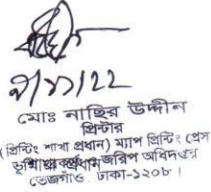 ২/১১/২২
মোঃ নাছির উদ্দীন
প্রিন্টার
(প্রিন্টিং শাখা প্রধান) ম্যাপ প্রিন্টিং প্রেস
ভূমি রেকর্ড জরিপ অধিদপ্তর
তেজগাঁও, ঢাকা-১২০৮।